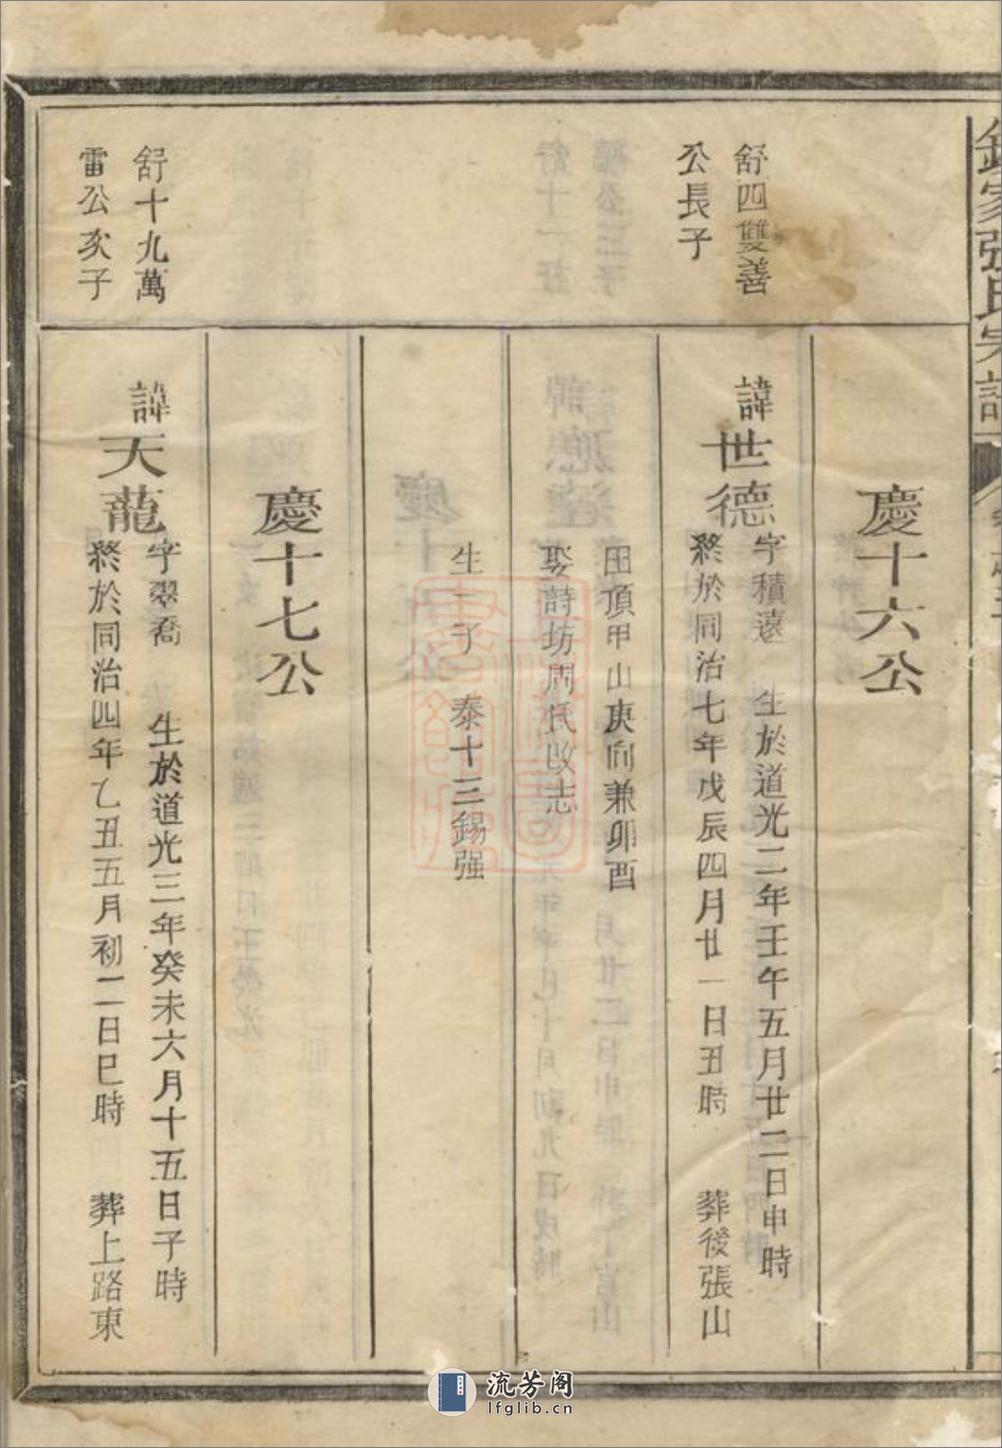 張氏宗譜
慶十六公
舒四雙善
公長子
諱世德
字積遠 生於道光二年壬午五月廿二日申時
終於同治七年戊辰四月廿一日丑時 葬後張山
田頂甲山庚向兼卯酉
娶詩坊周氏改志
生一子 泰十三錫强
慶十七公
舒十九萬
雷公次子
諱天龍
字翠喬 生於道光三年癸未六月十五日子時
終於同治四年乙丑五月初二日巳時 葬上路東
流芳阁
lfglib.cn